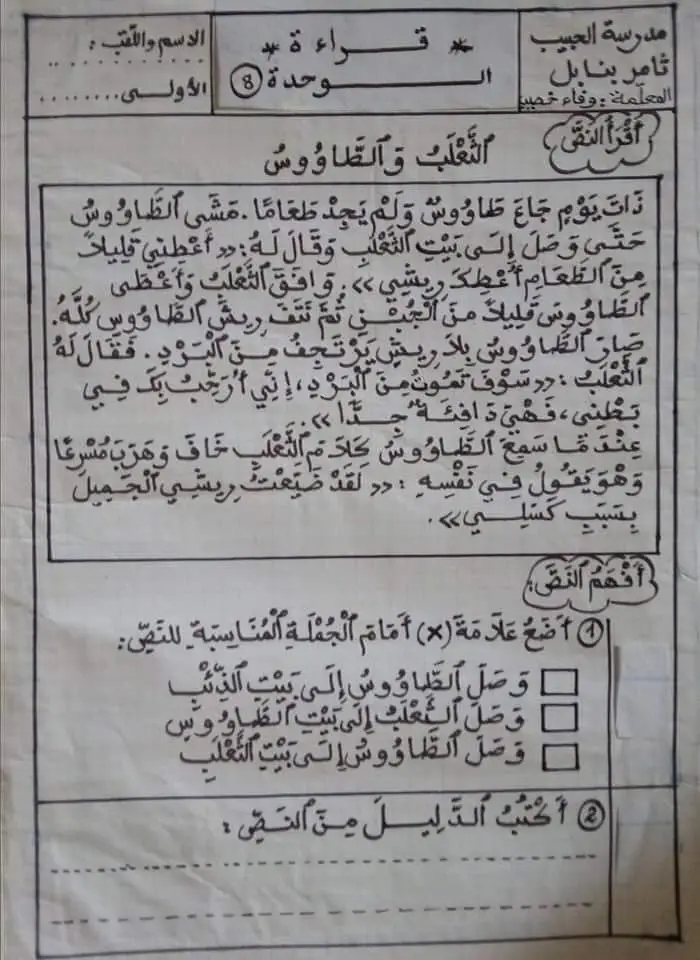 مدرسة الحبيب
ثامر بنابل
المعلّمة : وفاء
* قــــراءة *
الــــوحدة 8
الاسم واللّقب :
. . . . . . . . . . .
الأولــى.........
أَقْرَأُ النَّصَّ
الثَّعْلَبُ وَالطَّاوُوسُ
ذَاتَ يَوْمٍ جَاعَ طَاوُوسٌ وَلَمْ يَجِدْ طَعَامًا. مَشَى الطَّاوُوسُ
حَتَّى وَصَلَ إِلَى بَيْتِ الثَّعْلَبِ وَقَالَ لَهُ: «أَعْطِنِي قَلِيلًا
مِنَ الطَّعَامِ أُعْطِكَ رِيشِي». وَافَقَ الثَّعْلَبُ وَأَعْطَى
الطَّاوُوسَ قَلِيلًا مِنَ الْجُبْنِ ثُمَّ نَتَفَ رِيشَ الطَّاوُوسِ كُلَّهُ.
صَارَ الطَّاوُوسُ بِلَا رِيشٍ يَرْتَجِفُ مِنَ الْبَرْدِ. فَقَالَ لَهُ
الثَّعْلَبُ: «سَوْفَ تَمُوتُ مِنَ الْبَرْدِ، إِنِّي أُرَحِّبُ بِكَ فِي
بَطْنِي، فَهْيَ دَافِئَةٌ جِدًّا».
عِنْدَمَا سَمِعَ الطَّاوُوسُ كَلَامَ الثَّعْلَبِ خَافَ وَهَرَبَ مُسْرِعًا
وَهْوَ يَقُولُ فِي نَفْسِهِ: «لَقَدْ ضَيَّعْتُ رِيشِي الْجَمِيلَ
بِسَبَبِ كَسَلِي».
أَفْهَمُ النَّصَّ:
1 أَضَعُ عَلَامَةَ (×) أَمَامَ الْجُمْلَةِ الْمُنَاسِبَةِ لِلنَّصِّ:
وَصَلَ الطَّاوُوسُ إِلَى بَيْتِ الذِّئْبِ
وَصَلَ الثَّعْلَبُ إِلَى بَيْتِ الطَّاوُوسِ
وَصَلَ الطَّاوُوسُ إِلَى بَيْتِ الثَّعْلَبِ
2 أَكْتُبُ الدَّلِيلَ مِنَ النَّصِّ: